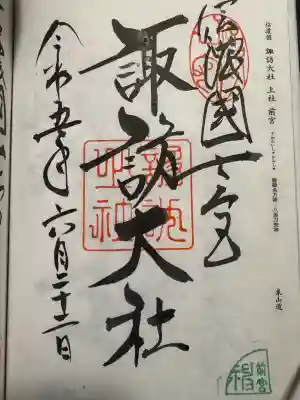 信濃国 諏訪大社 上社 前宮
東山道
信濃國一之宮
諏訪大社
令和五年六月二十二日
諏訪大社
前宮